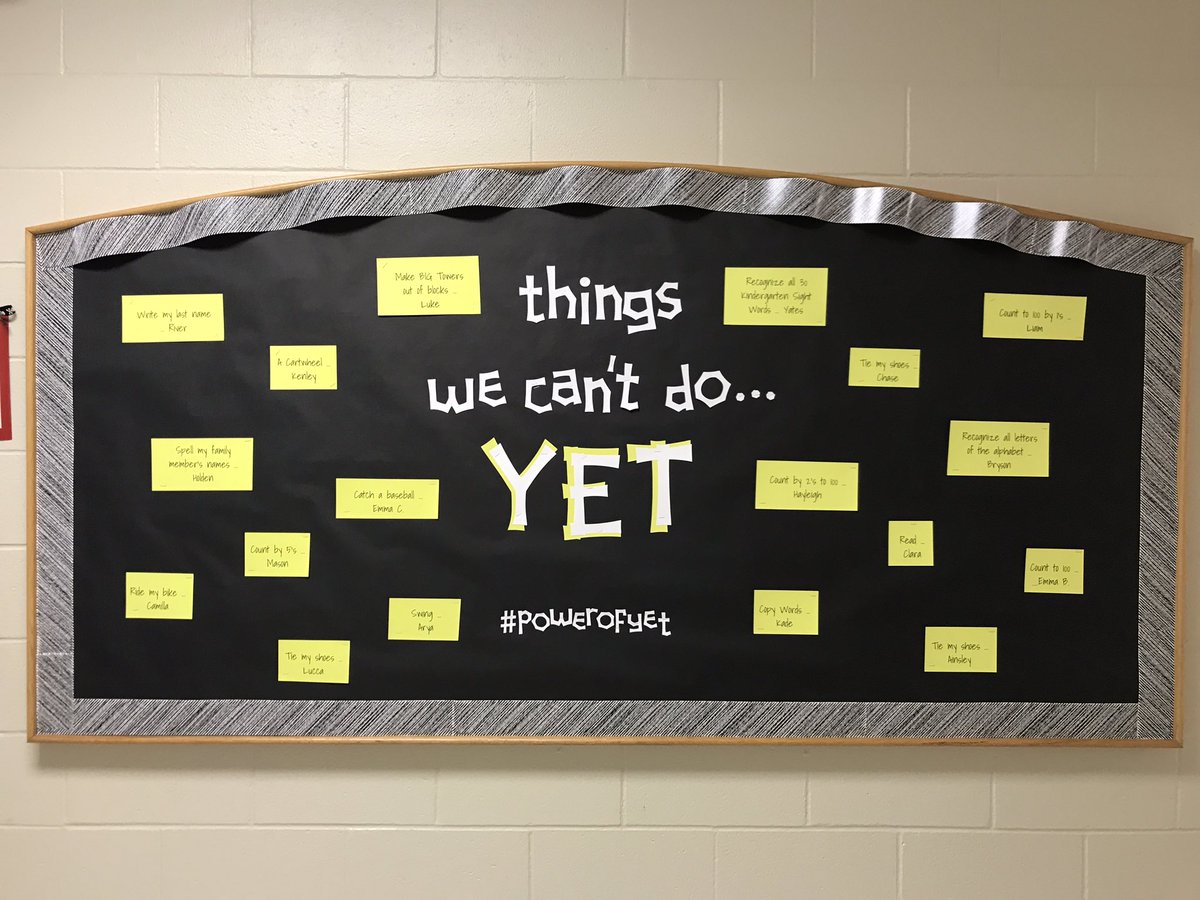 things
we can't do...
YET
#powerofyet
Write my last name
... River
Make BIG Towers
out of blocks ...
Luke
A Cartwheel ...
Kenley
Spell my family
member's names ...
Holden
Catch a baseball ...
Emma C.
Count by 5's ...
Mason
Ride my bike ...
Camilla
Swing ...
Arya
Tie my shoes ...
Lucca
Recognize all 30
Kindergarten Sight
Words ... Yates
Count to 100 by 7s ...
Liam
Tie my shoes ...
Chase
Recognize all letters
of the alphabet ...
Bryson
Count by 2's to 100 ...
Hayleigh
Read ...
Clara
Count to 100 ...
Emma B.
Copy Words ...
Kade
Tie my shoes ...
Ainsley